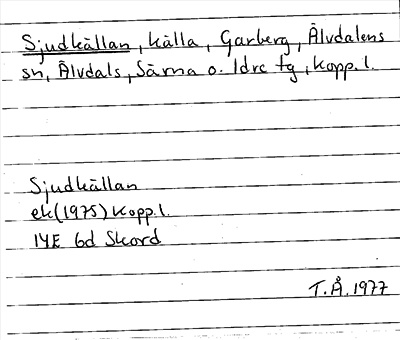 Sjudkällan, källa, Garberg, Älvdalens
sn, Älvdals, Särna o. Idre tg, Kopp. l.
Sjudkällan
ek (1975) Kopp. l.
14E 6d Skord
T.Å. 1977